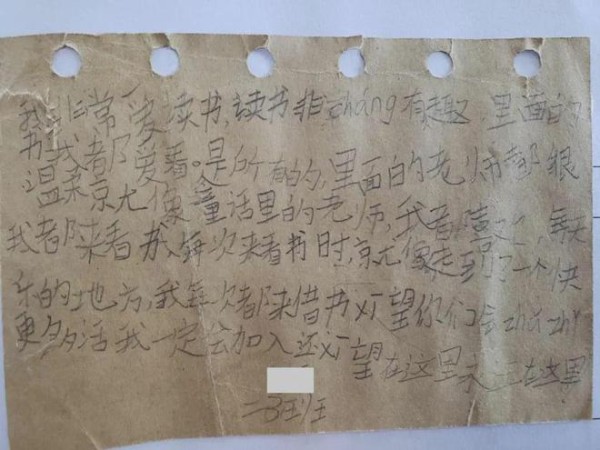 我非常爱读书,读书非cháng有趣,里面的
书我都爱看。是所有的,里面的老师都很
温柔京尤像童话里的老师,我都喜欢,每天
我都来看书,每次来看书时,京尤像走到了一个快
乐的地方,我每次都来借书义望你们会zhǔ zhī
更多多活我一定会加入还义望在这里 在这里
二3班